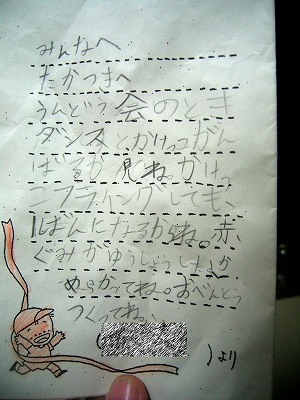 みんなへ
たかつきへ
うんどう会のとき
ダンスとかけっこがん
ばるが見ね。かけっ
こフライングしても、
1ばんになるからね。赤
ぐみがゆうしょうしたよか
らってね。おべんとう
つくってね。
より